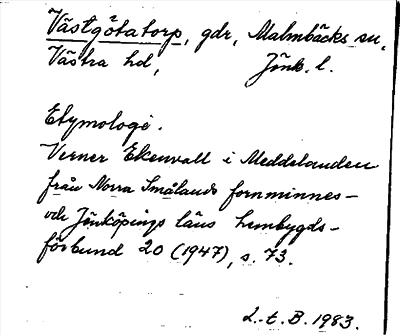 Västgötatorp, gdr, Malmbäcks sn,
Västra hd, Jönk. l.
Etymologi.
Verner Ekenvall i Meddelanden
från Norra Smålands fornminnes-
och Jönköpings läns hembygds-
förbund 20 (1947), s. 73.
L.-t. B. 1983.